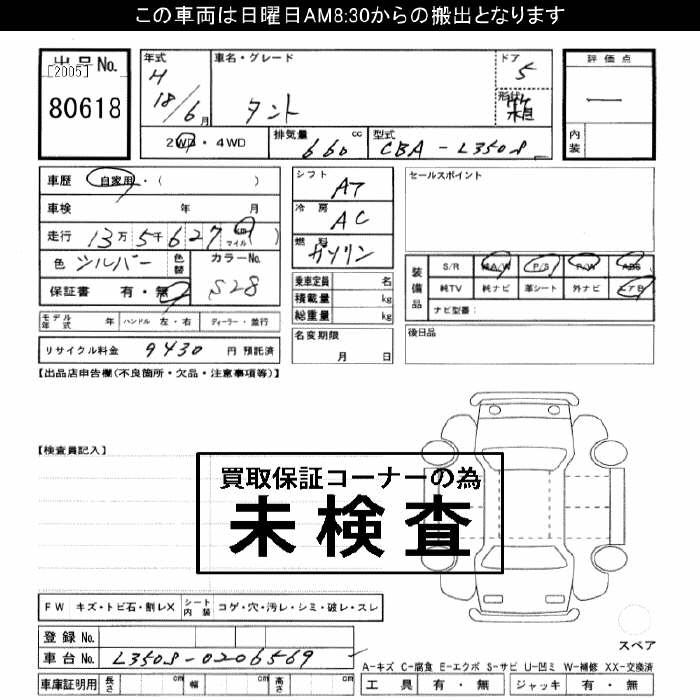 この車両は日曜日AM8:30からの搬出となります
出品No.
[2005]
80618
年式
H
18/6月
車名・グレード
タント
ドア
5
形状
箱
評価点
—
内装
2WD・4WD
排気量
660 cc
型式
CBA-L350S
車歴 自家用・( )
車検 年 月
走行 13万5千627 km マイル( )
色 シルバー 色替 カラーNo.
S28
保証書 有・無
モデル年式 年 ハンドル 左・右 ディーラー・並行
リサイクル料金 9430 円 預託済
シフト AT
冷房 AC
燃料 ガソリン
乗車定員 名
積載量 kg
総重量 kg
名変期限
月 日
セールスポイント
装備品
S/R A/W P/S P/W ABS
純TV 純ナビ 革シート 外ナビ エアB
ナビ型番:
後日品
【出品店申告欄(不良箇所・欠品・注意事項等)】
【検査員記入】
買取保証コーナーの為
未検査
FW キズ・トビ石・割レX シート内装 コゲ・穴・汚レ・シミ・破レ・スレ
登録No.
車台No. L350S-0206569
車庫証明用 長さ cm 幅 cm 高さ cm
スペア
A-キズ C-腐食 E-エクボ S-サビ U-凹ミ W-補修 XX-交換済
工具 有・無 ジャッキ 有・無